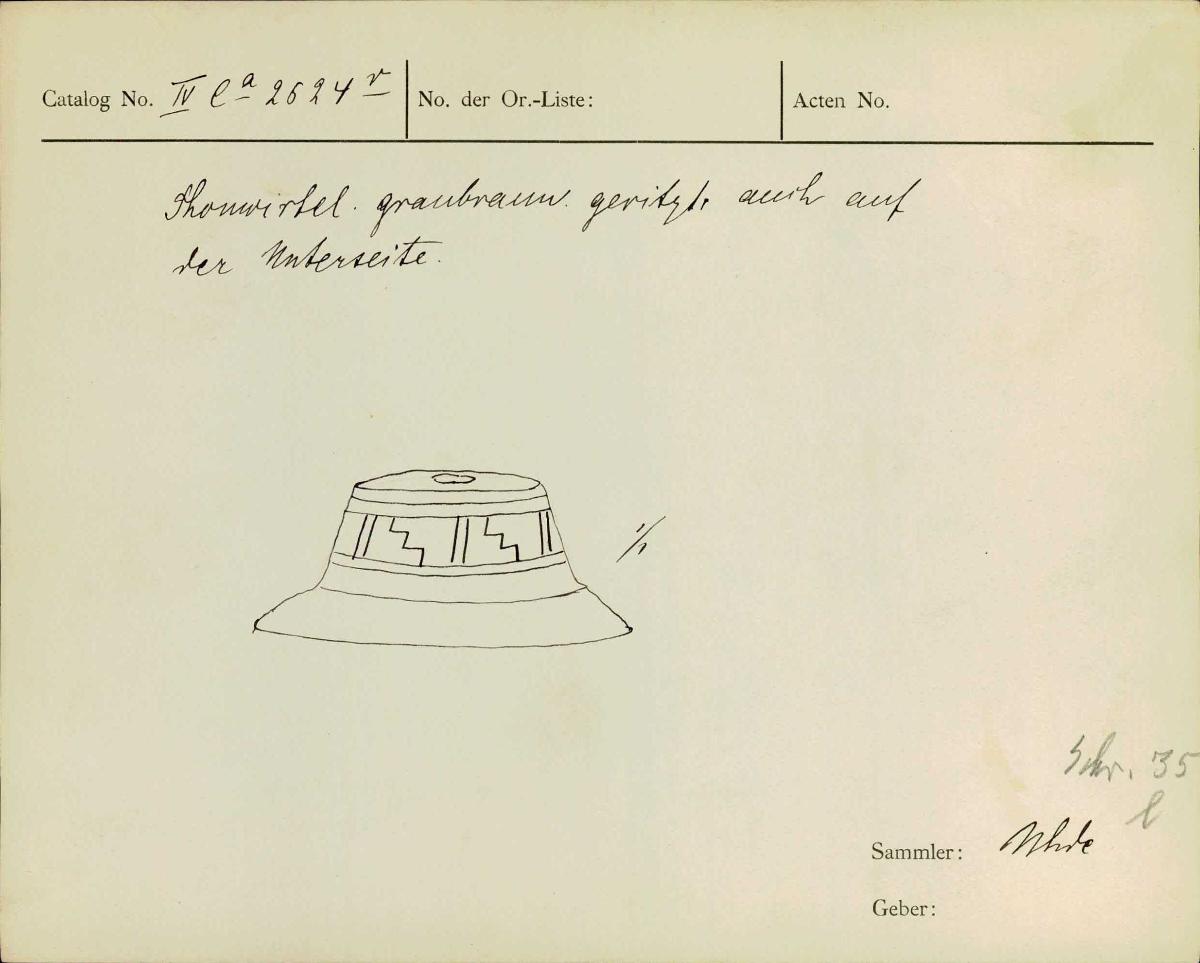 Catalog No. IV Ca 2624 r No. der Or.-Liste: Acten No.
Thonwirtel. graubraun. geritzt, auch auf
der Unterseite.
1/1
Schr. 35
l
Sammler: Uhde
Geber: